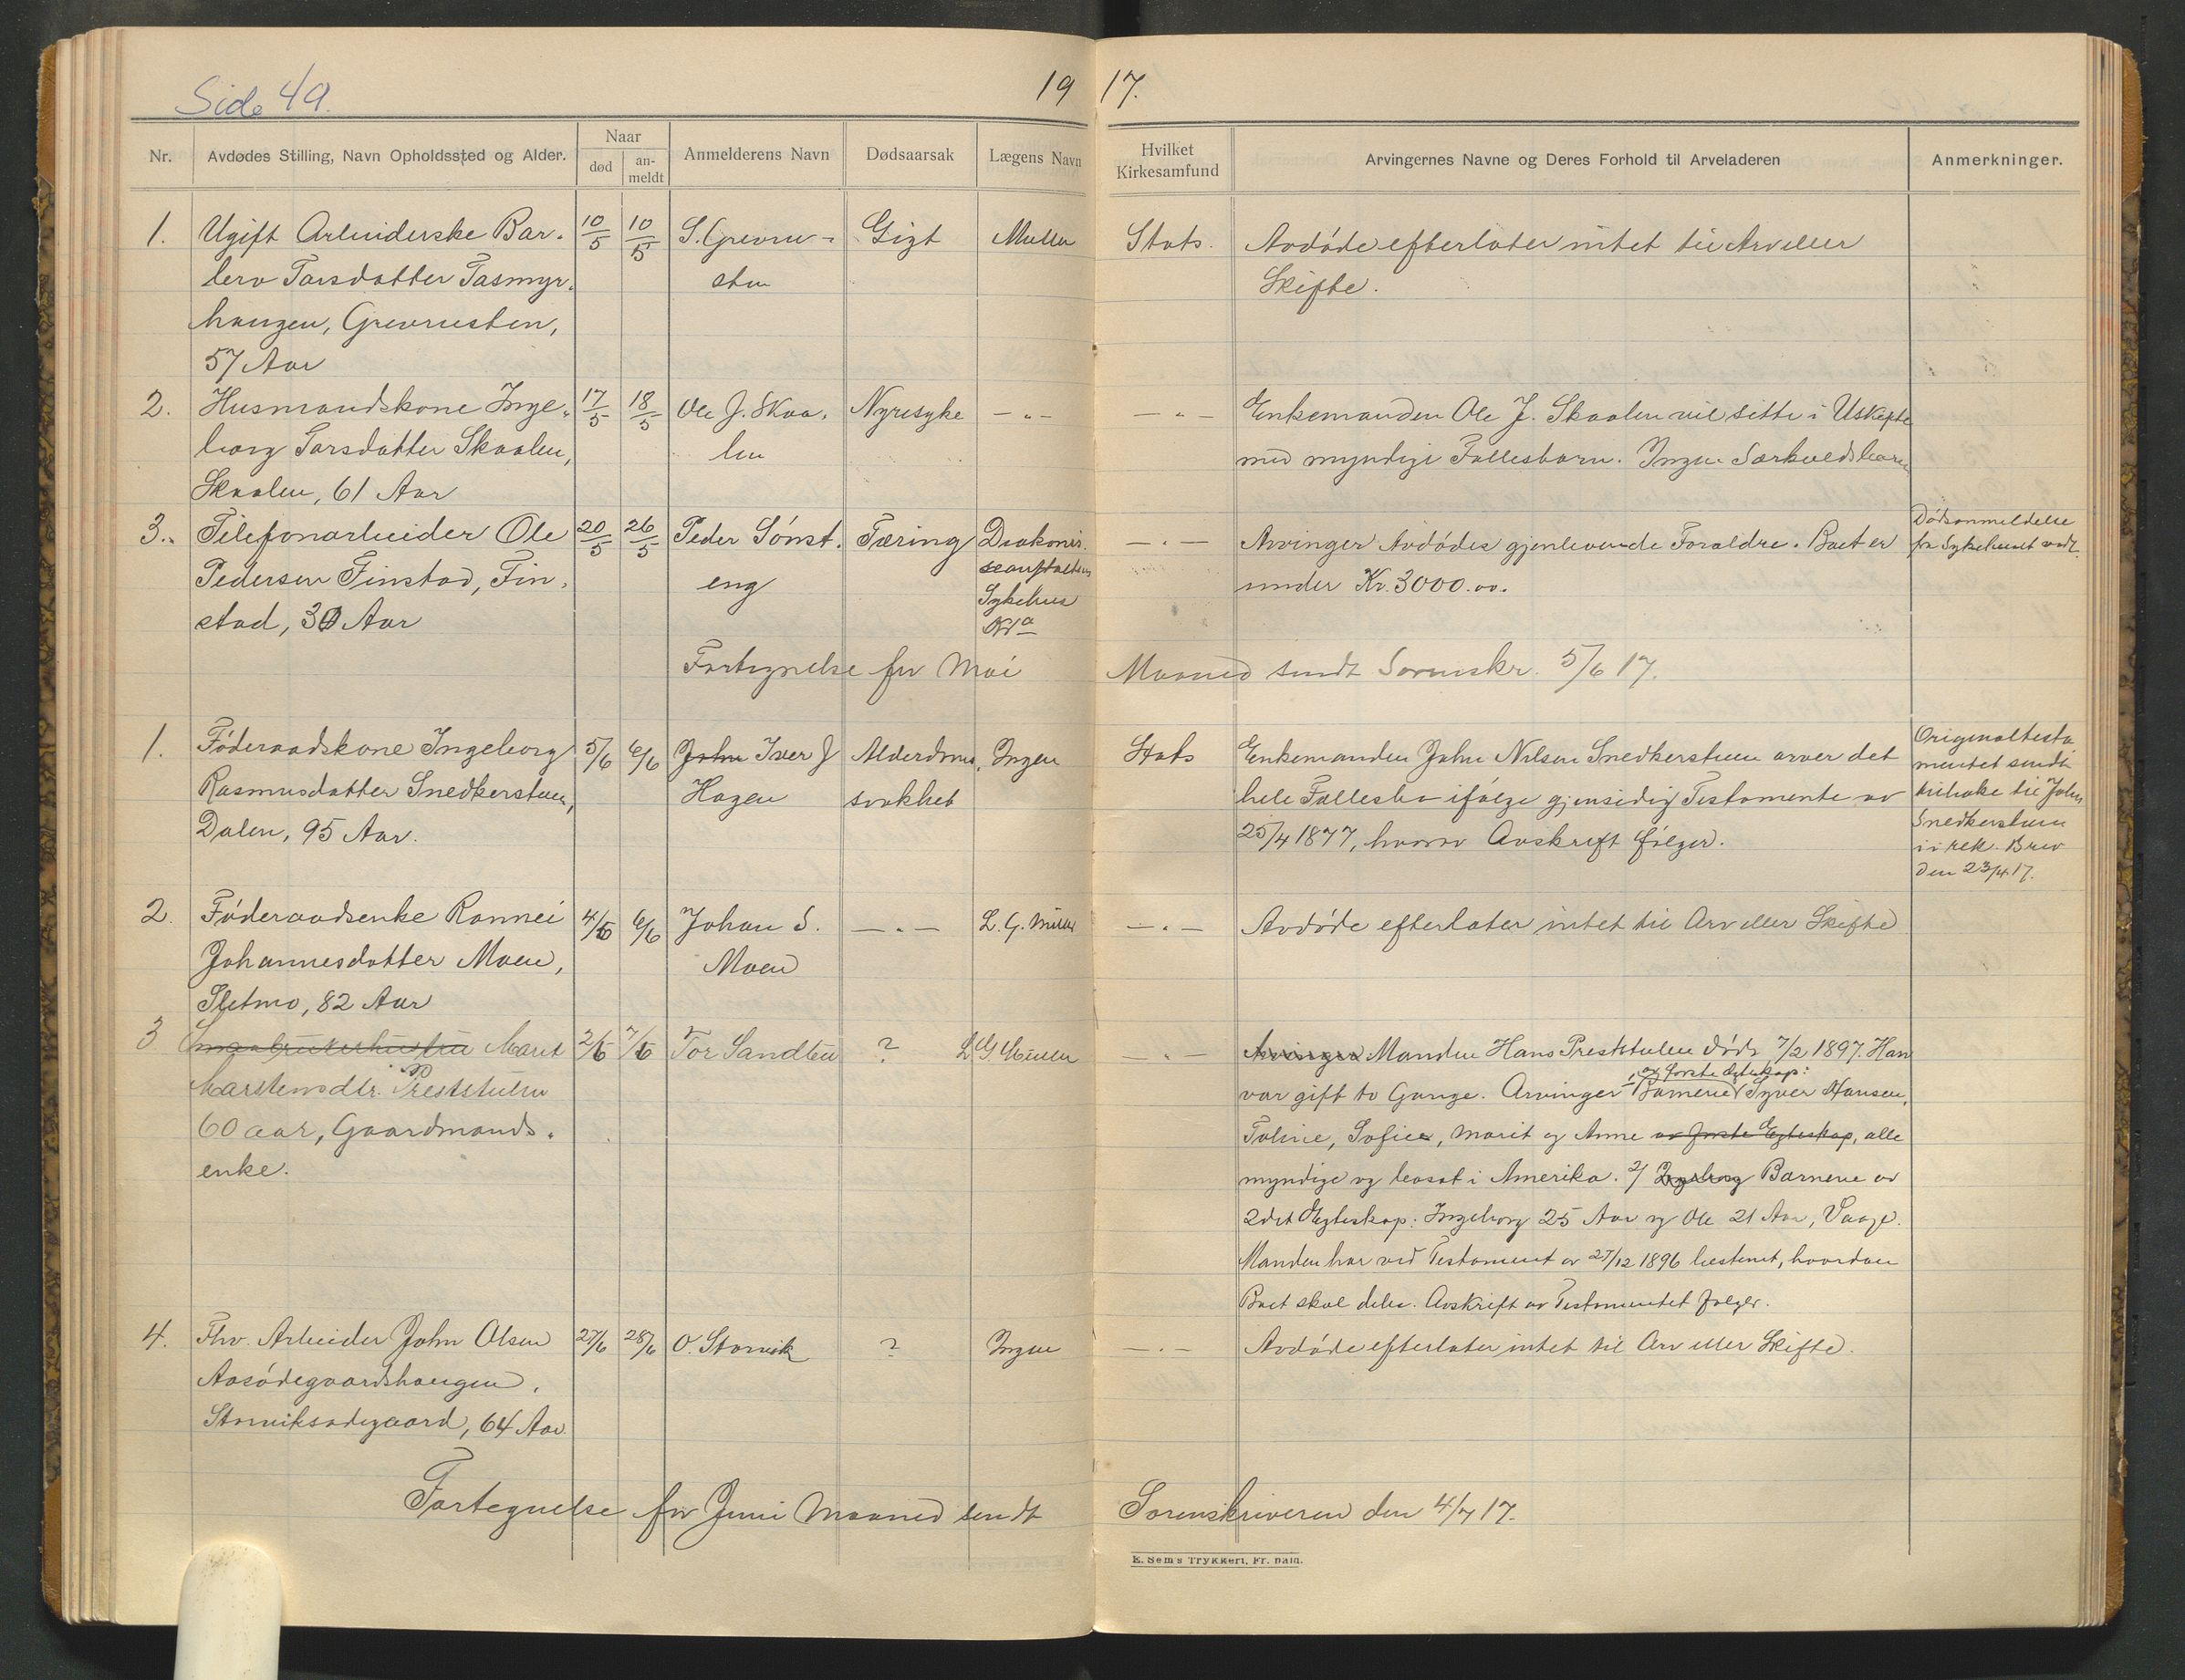 Side 49.
19 17.
Nr.
Avdødes Stilling, Navn Opholdssted og Alder.
Naar
død
an-
meldt
Anmelderens Navn
Dødsaarsak
Lægens Navn
Hvilket
Kirkesamfund
Arvingernes Navne og Deres Forhold til Arveladeren
Anmerkninger.
1. Ugift Arbeiderske Bar- 10/5 10/5 S. Grevru- Gigt Muller Stats. Avdøde efterlater intet til Arv eller
bero Torsdatter Tasmyr- sten Skifte.
haugen, Grevrusten,
57 Aar
2. Husmandskone Inge- 17/5 18/5 Ole J. Skaa- Nyresyke —"— —"— Enkemanden Ole J. Skaalen vil sitte i Uskifte
borg Torsdatter Skaalen, len med myndige Fællesbarn. Ingen Særkuldsbarn
Skaalen, 61 Aar
3. Telefonarbeider Ole 20/5 26/5 Peder Sønst- Tæring Diakonis- —"— Arvinger Avdødes gjenlevende Forældre. Boet er Dødsanmeldelse
Pedersen Finstad, Fin- eng seanstaltens under Kr. 3000.00. fra Sykehuset vedl.
stad, 30 Aar Sykehus
Kr.a
Fortegnelse for Mai Maaned sendt Sorenskr. 5/6 17.
1. Føderaadskone Ingeborg 5/6 6/6 John Iver J Alderdoms- Ingen Stats Enkemanden John Nilsen Snedkerstuen arver det Originaltesta
Rasmusdatter Snedkerstuen, Hagen svakhet hele Fællesbo ifølge gjensidig Testamente av mentet sendt
Dalen, 95 Aar. 25/4 1877, hvorav Avskrift følger. tilbake til John
Snedkerstuen
i rek. Brev
den 23/4 17.
2. Føderaadsenke Rannei 4/6 6/6 Johan S. —"— L. G. Müller —"— Avdøde efterlater intet til Arv eller Skifte
Johannesdatter Moen, Moen
Sletmo, 82 Aar
3 Smaabrukerhustru Marit 2/6 7/6 Tor Sandten ? L. G. Müller —"— Arvinger Manden Hans Preststulen døde 7/2 1897. Han
av første Egteskap:
Karstensdtr. Preststulen var gift to Gange. Arvinger 1/ Barnene Syver Hansen,
60 aar, Gaardmands- Toline, Sofie, Marit og Anne av første Egteskap, alle
enke. myndige og bosat i Amerika. 2/ Ingeborg Barnene av
2det Egteskap: Ingeborg 25 Aar og Ole 21 Aar, Vaage.
Manden har ved Testament av 27/12 1896 bestemt, hvordan
Boet skal deles. Avskrift av Testamentet følger.
4. Fhv. Arbeider John Olsen 27/6 28/6 O. Storvik ? Ingen —"— Avdøde efterlater intet til Arv eller Skifte.
Aasødegaardshaugen,
Storviksødegaard, 64 Aar
Fortegnelse for Juni Maaned sendt Sorenskriveren den 4/7 17.
E. Sem's Trykkeri, Fr. hald.